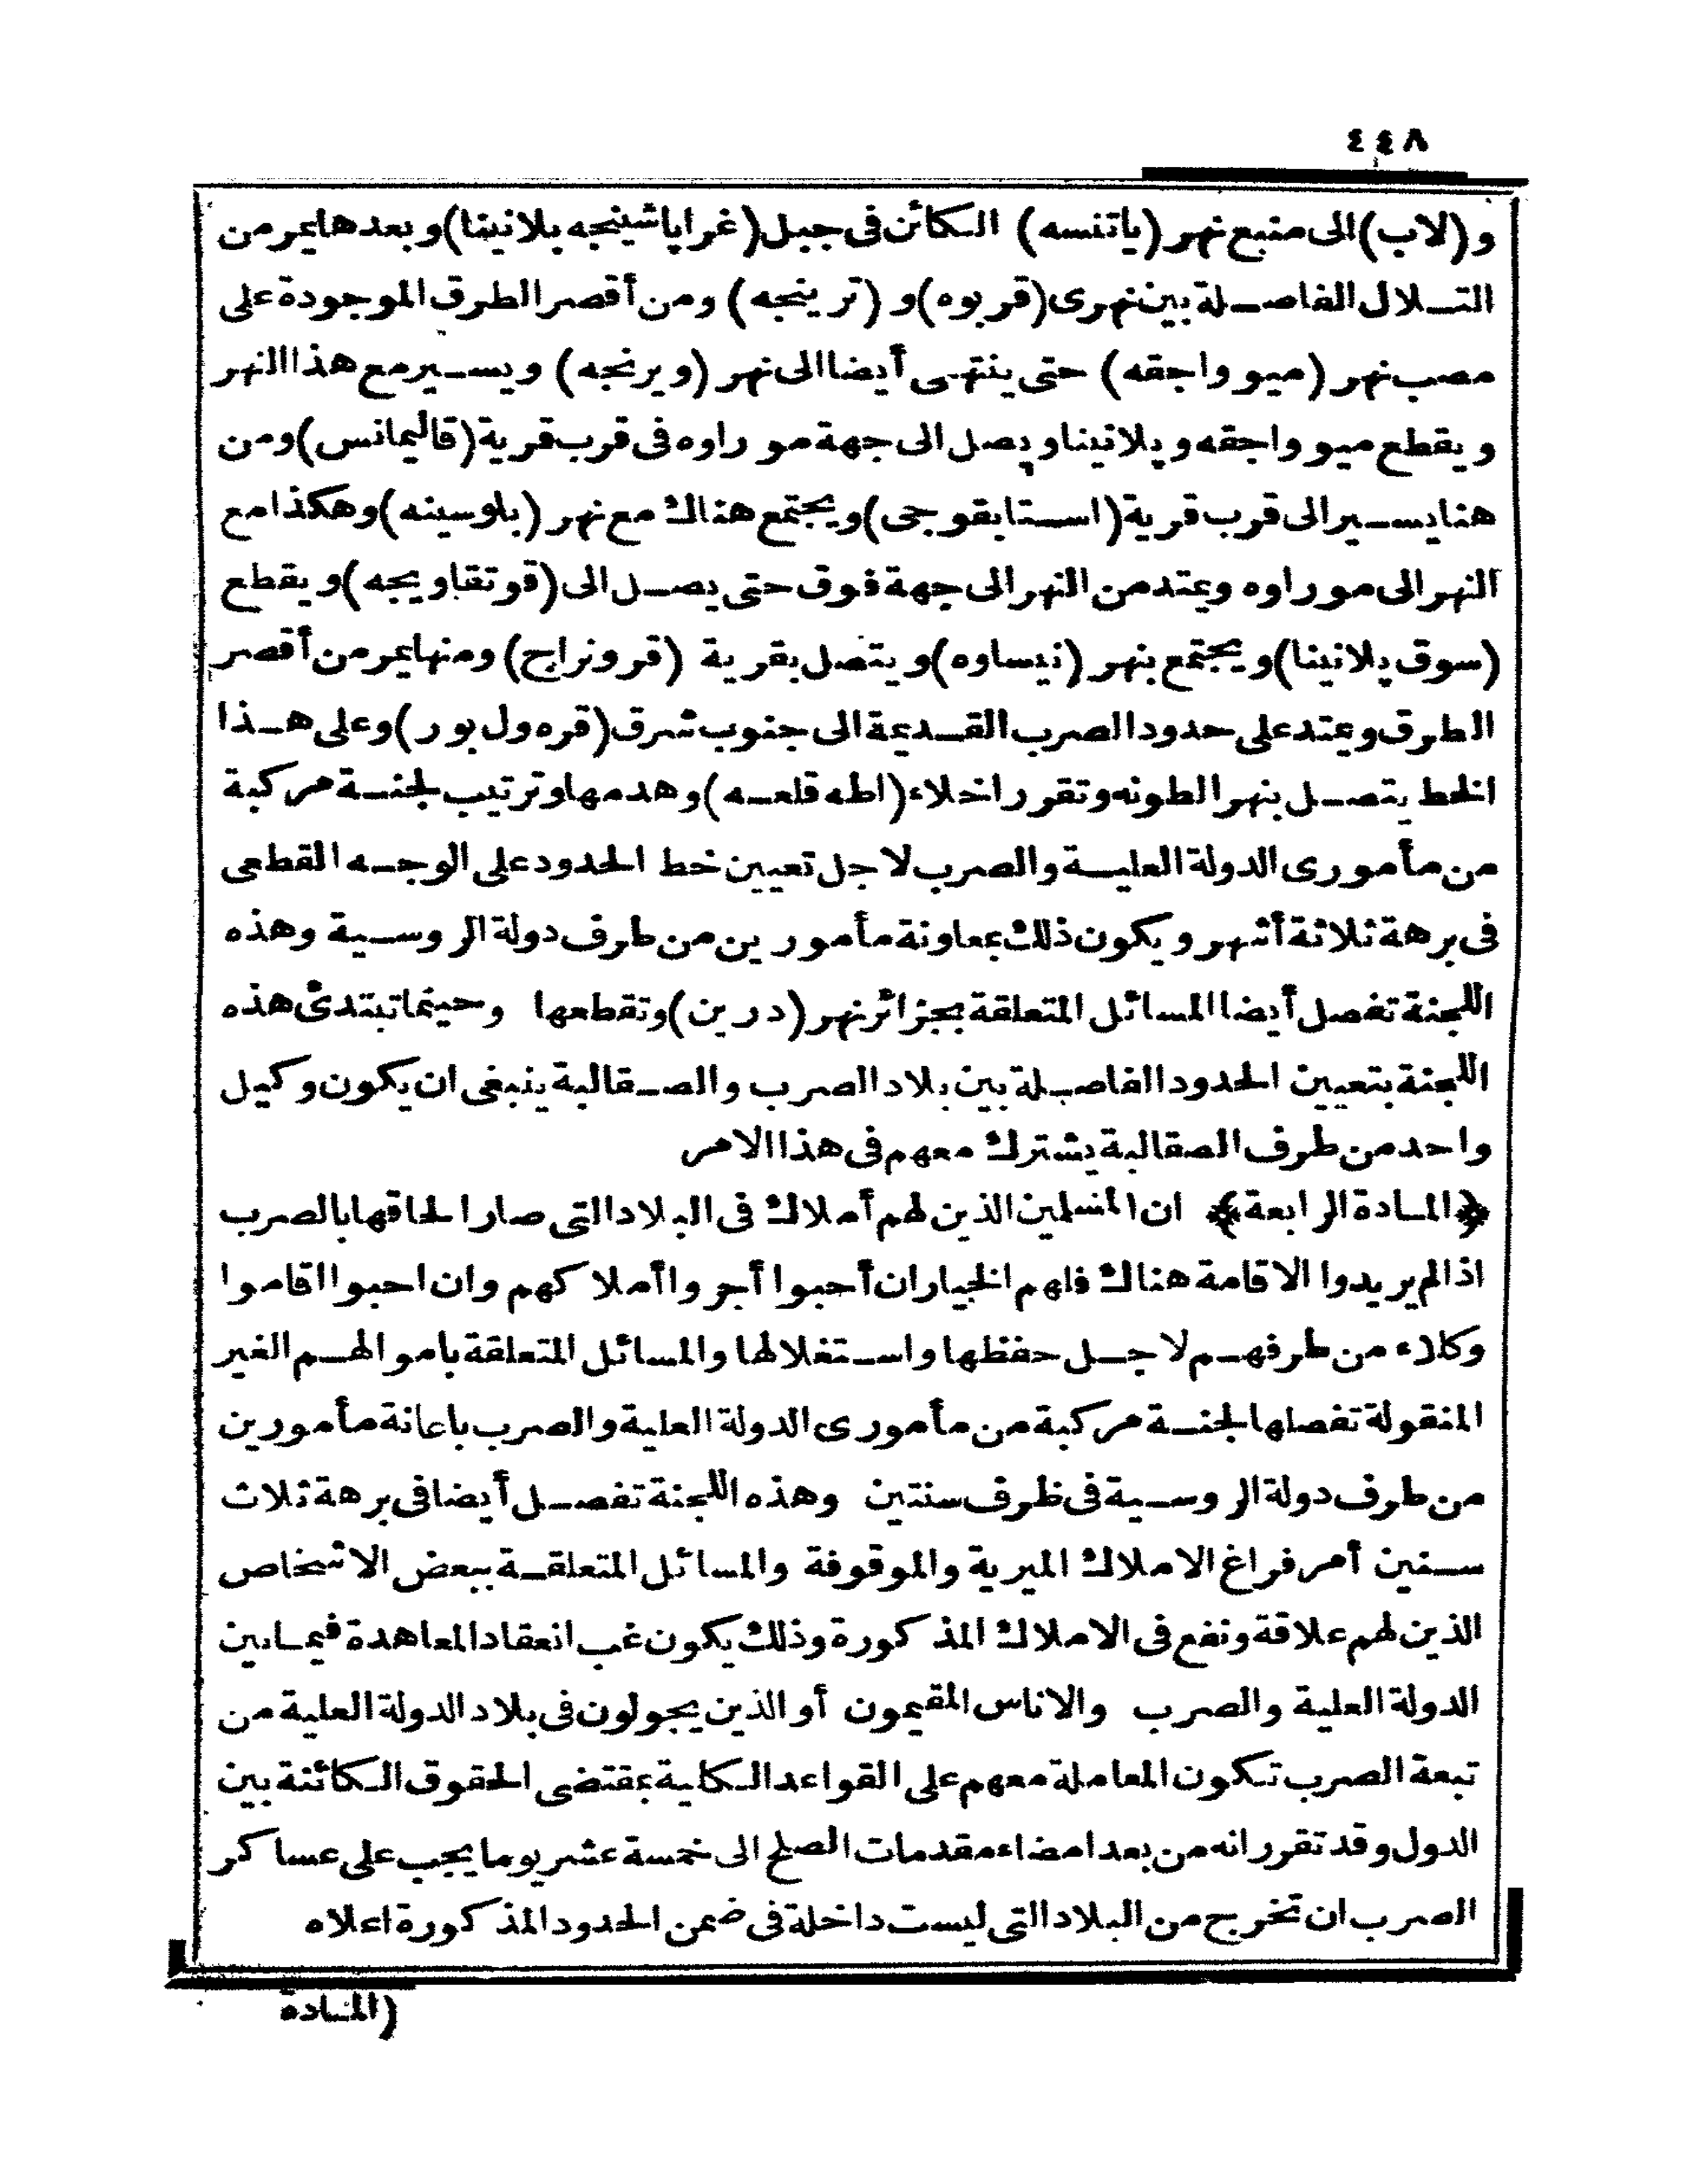 ٤٤٨
و (لاب) الى منبع نهر (ياتنسه) الكائن فى جبل (غراپاشينجه پلانينا) و بعدها يمر من
التلال الفاصلة بين نهرى (قربوه) و (ترينجه) ومن أقصر الطرق الموجودة على
مصب نهر (ميوواجقه) حتى ينتهى أيضا الى نهر (ويرنجه) ويسير مع هذا النهر
ويقطع ميوواجقه و پلانينا ويصل الى جهة موراوه فى قرب قرية (قاليمانس) ومن
هنا يسير الى قرب قرية (استابقوجى) ويجتمع هناك مع نهر (بلوسينه) وهكذا مع
النهر الى موراوه ويمتد من النهر الى جهة فوق حتى يصل الى (قوتقاويجه) ويقطع
(سوق پلانينا) ويجتمع بنهر (نيساوه) ويتصل بقرية (قرونراج) ومنها يمر من أقصر
الطرق ويمتد على حدود الصرب القديمة الى جنوب شرق (قره ول بور) وعلى هذا
الخط يتصل بنهر الطونه وتقرر اخلاء (اطه قلعه) وهدمها وترتيب لجنة مركبة
من مأمورى الدولة العلية والصرب لاجل تعيين خط الحدود على الوجه القطعى
فى برهة ثلاثة أشهر ويكون ذلك بمعاونة مأمورين من طرف دولة الروسية وهذه
اللجنة تفصل أيضا المسائل المتعلقة بجزائر نهر (درين) وتقطعها وحينما تبتدئ هذه
اللجنة بتعيين الحدود الفاصلة بين بلاد الصرب والصقالبة ينبغى ان يكون وكيل
واحد من طرف الصقالبة يشترك معهم فى هذا الامر
﴿المادة الرابعة﴾ ان المسلمين الذين لهم أملاك فى البلاد التى صار الحاقها بالصرب
اذا لم يريدوا الاقامة هناك فلهم الخيار ان أحبوا أجروا أملاكهم وان احبوا اقاموا
وكلاء من طرفهم لاجل حفظها واستغلالها والمسائل المتعلقة باموالهم الغير
المنقولة تفصلها لجنة مركبة من مأمورى الدولة العلية والصرب باعانة مأمورين
من طرف دولة الروسية فى ظرف سنتين وهذه اللجنة تفصل أيضا فى برهة ثلاث
سنين أمر فراغ الاملاك الميرية والموقوفة والمسائل المتعلقة ببعض الاشخاص
الذين لهم علاقة ونفع فى الاملاك المذكورة وذلك يكون غب انعقاد المعاهدة فيما بين
الدولة العلية والصرب والاناس المقيمون أو الذين يجولون فى بلاد الدولة العلية من
تبعة الصرب تكون المعاملة معهم على القواعد الكلية بمقتضى الحقوق الكائنة بين
الدول وقد تقرر انه من بعد امضاء مقدمات الصلح الى خمسة عشر يوما يجب على عساكر
الصرب ان تخرج من البلاد التى ليست داخلة فى ضمن الحدود المذكورة اعلاه
(المادة